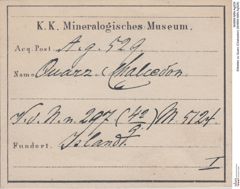 K. K. Mineralogisches Museum.
Acq. Post A. g. 529.
Name Quarz. Chalcedon.
V. d. N. n. 297 (42/9) M 5124.
Fundort. Island.
I